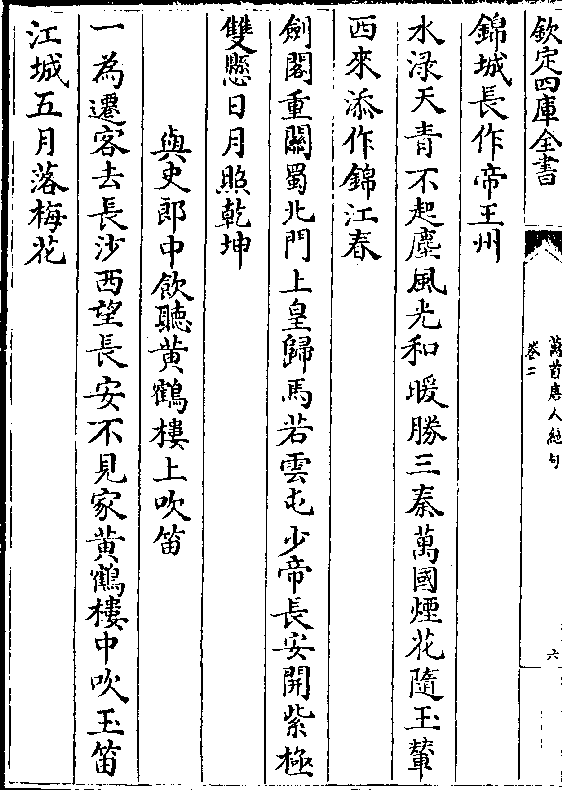 欽定四庫全書
萬首唐人絶句
卷二
六
錦城長作帝王州
水渌天青不起塵風光和暖勝三秦萬國煙花隨玉輦
西來添作錦江春
劍閣重關蜀北門上皇歸馬若雲屯少帝長安開紫極
雙懸日月照乾坤
與史郎中飲聽黄鶴樓上吹笛
一為遷客去長沙西望長安不見家黄鶴樓中吹玉笛
江城五月落梅花